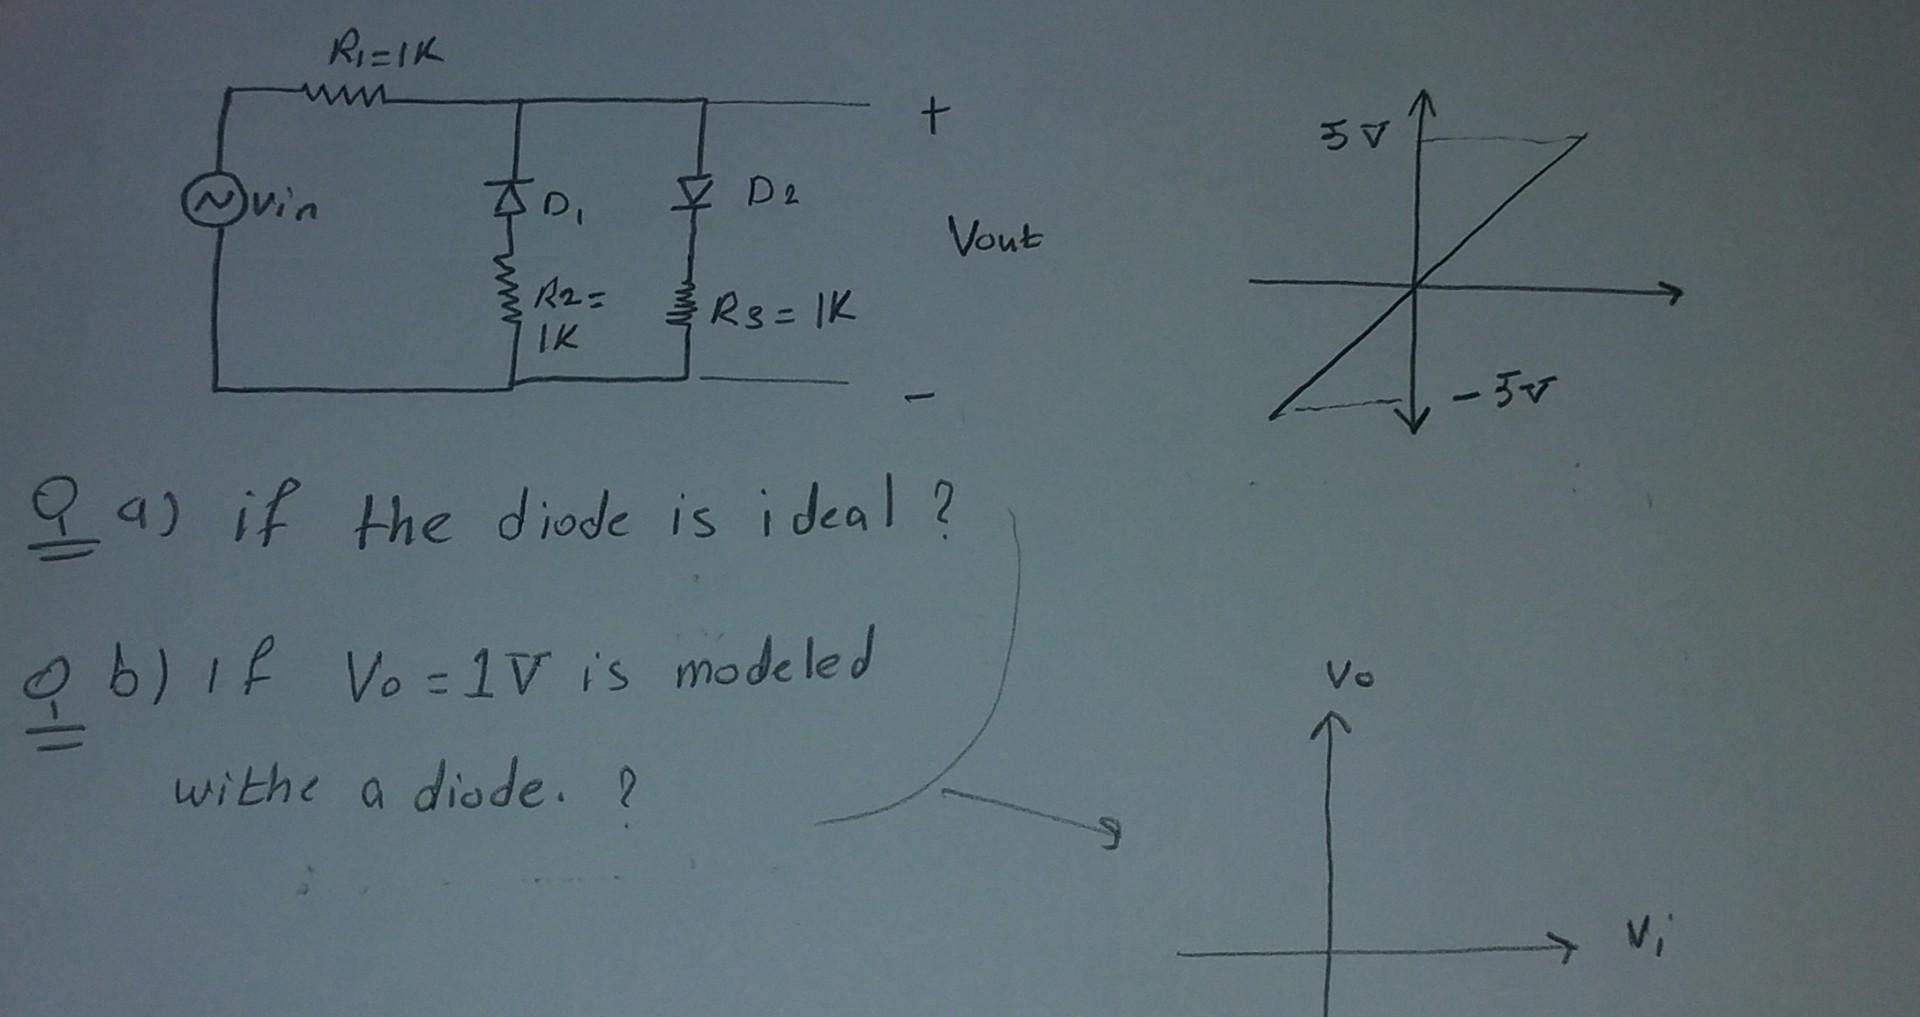 R1=1K
Vin
D1
D2
R2=
1K
R3=1K
+
Vout
-
5V
-5V
Q a) if the diode is ideal?
Q b) if Vo=1V is modeled
withe a diode. ?
Vo
Vi